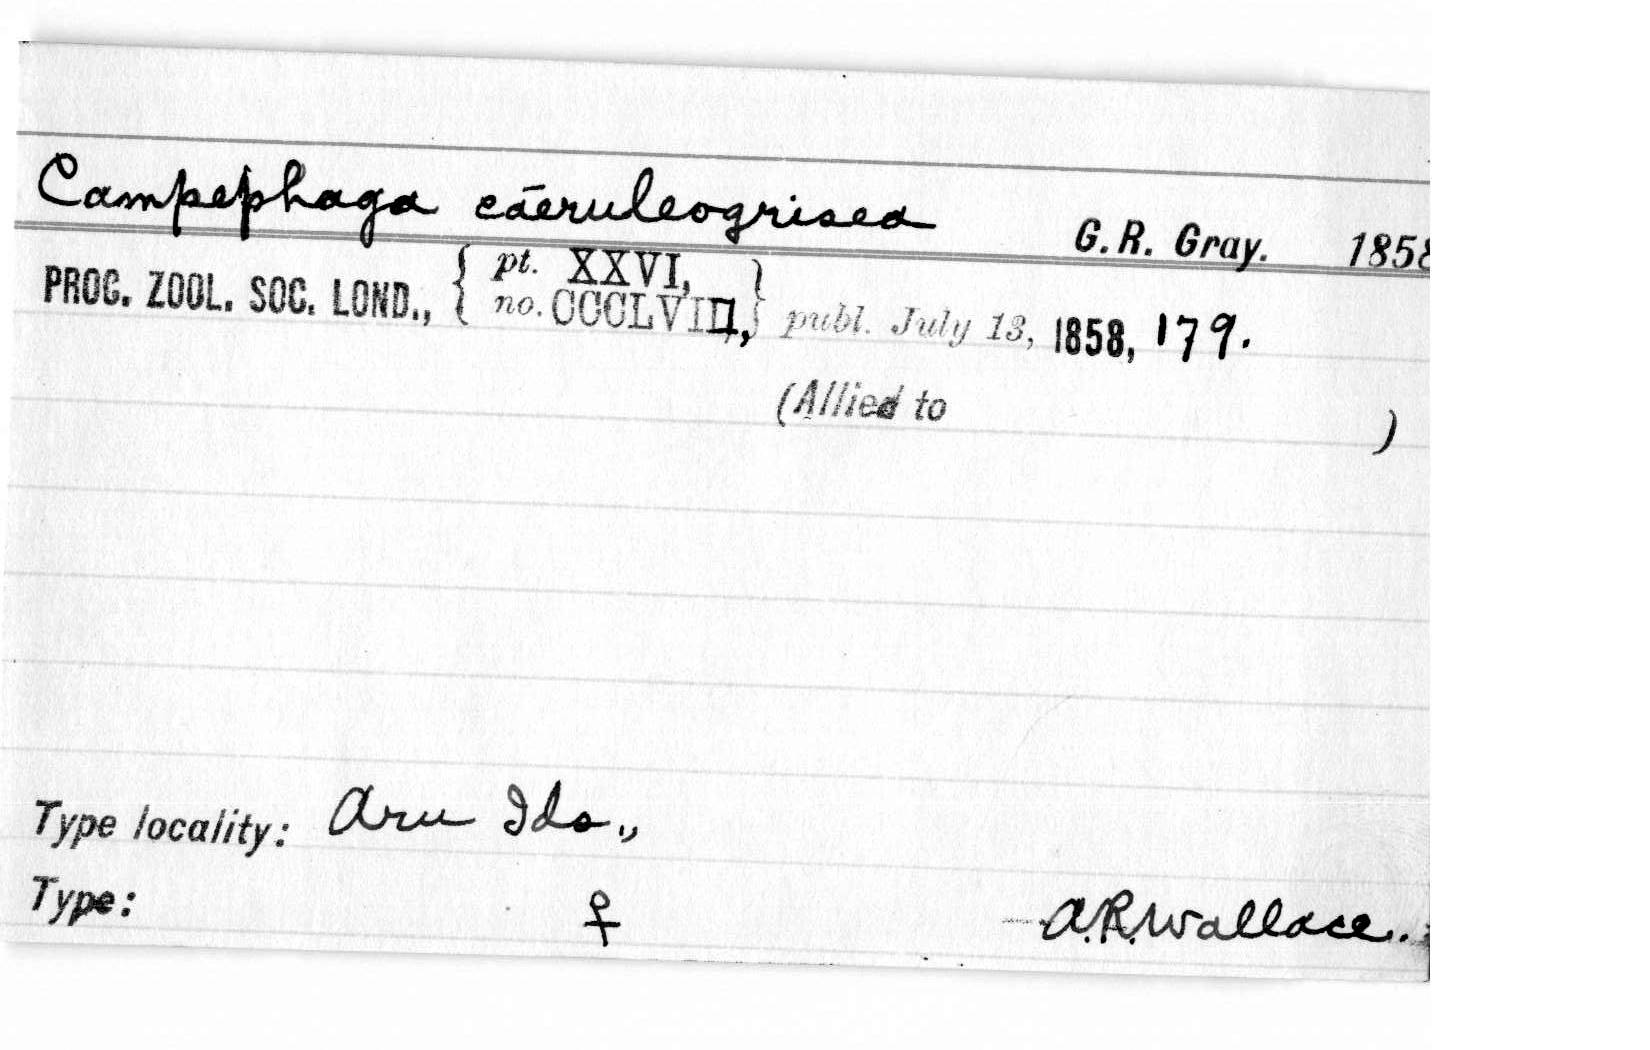 Campephaga cāeruleogrisea G. R. Gray. 1858
PROC. ZOOL. SOC. LOND., { pt. XXVI, no. CCCLVIII, } publ. July 13, 1858, 179.
(Allied to )
Type locality: Aru Ids.,
Type: ♀ A.R. Wallace.